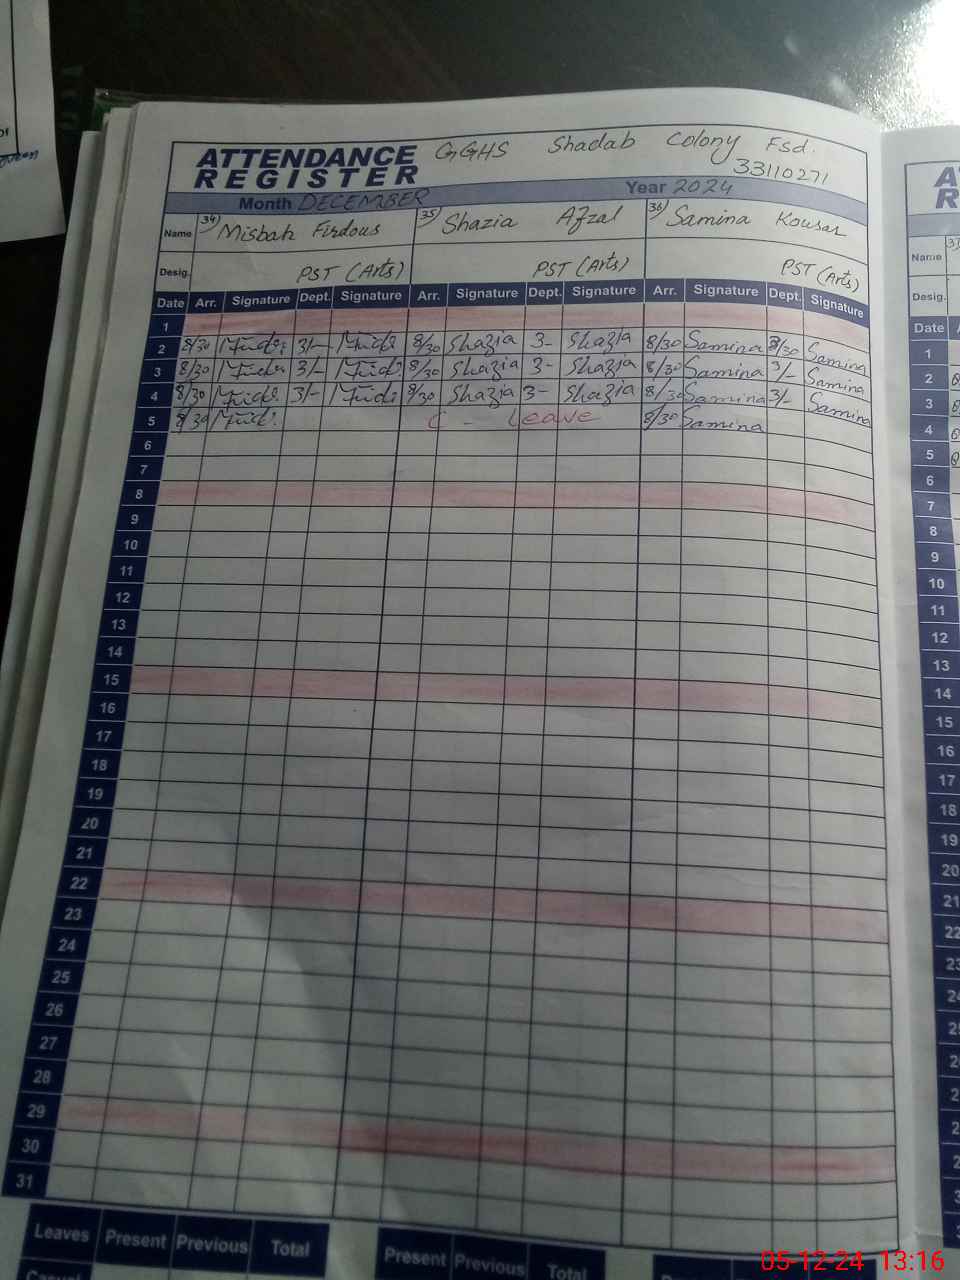 ATTENDANCE REGISTER GGHS Shadab Colony Fsd.
33110271
Month DECEMBER Year 2024
Name 34) Misbah Firdous 35) Shazia Afzal 36) Samina Kousar
Desig. PST (Arts) PST (Arts) PST (Arts)
Date Arr. Signature Dept. Signature Arr. Signature Dept. Signature Arr. Signature Dept. Signature
1
2 8/30 3/- 8/30 Shazia 3- Shazia 8/30 Samina 3/30 Samina
3 8/30 3/- 8/30 Shazia 3- Shazia 8/30 Samina 3/- Samina
4 8/30 3/- 8/30 Shazia 3- Shazia 8/30 Samina 3/- Samina
5 8/30 C - Leave 8/30 Samina
6
7
8
9
10
11
12
13
14
15
16
17
18
19
20
21
22
23
24
25
26
27
28
29
30
31
Leaves Present Previous Total Present Previous Total
Name
Desig.
Date
1
2
3
4
5
6
7
8
9
10
11
12
13
14
15
16
17
18
19
20
21
22
05-12-24 13:16